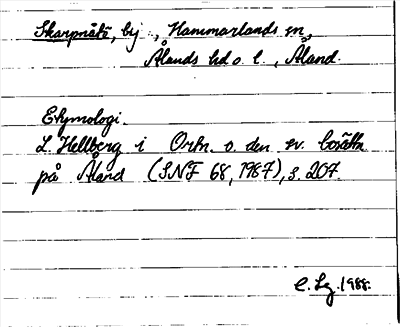 Skarpnåtö, by, Hammarlands sn,
Ålands hd o. l., Åland.
Etymologi.
L. Hellberg i Ortn. o. den sv. bosättn
på Åland (SNF 68, 1987), s. 207.
C. Lg. 1988.